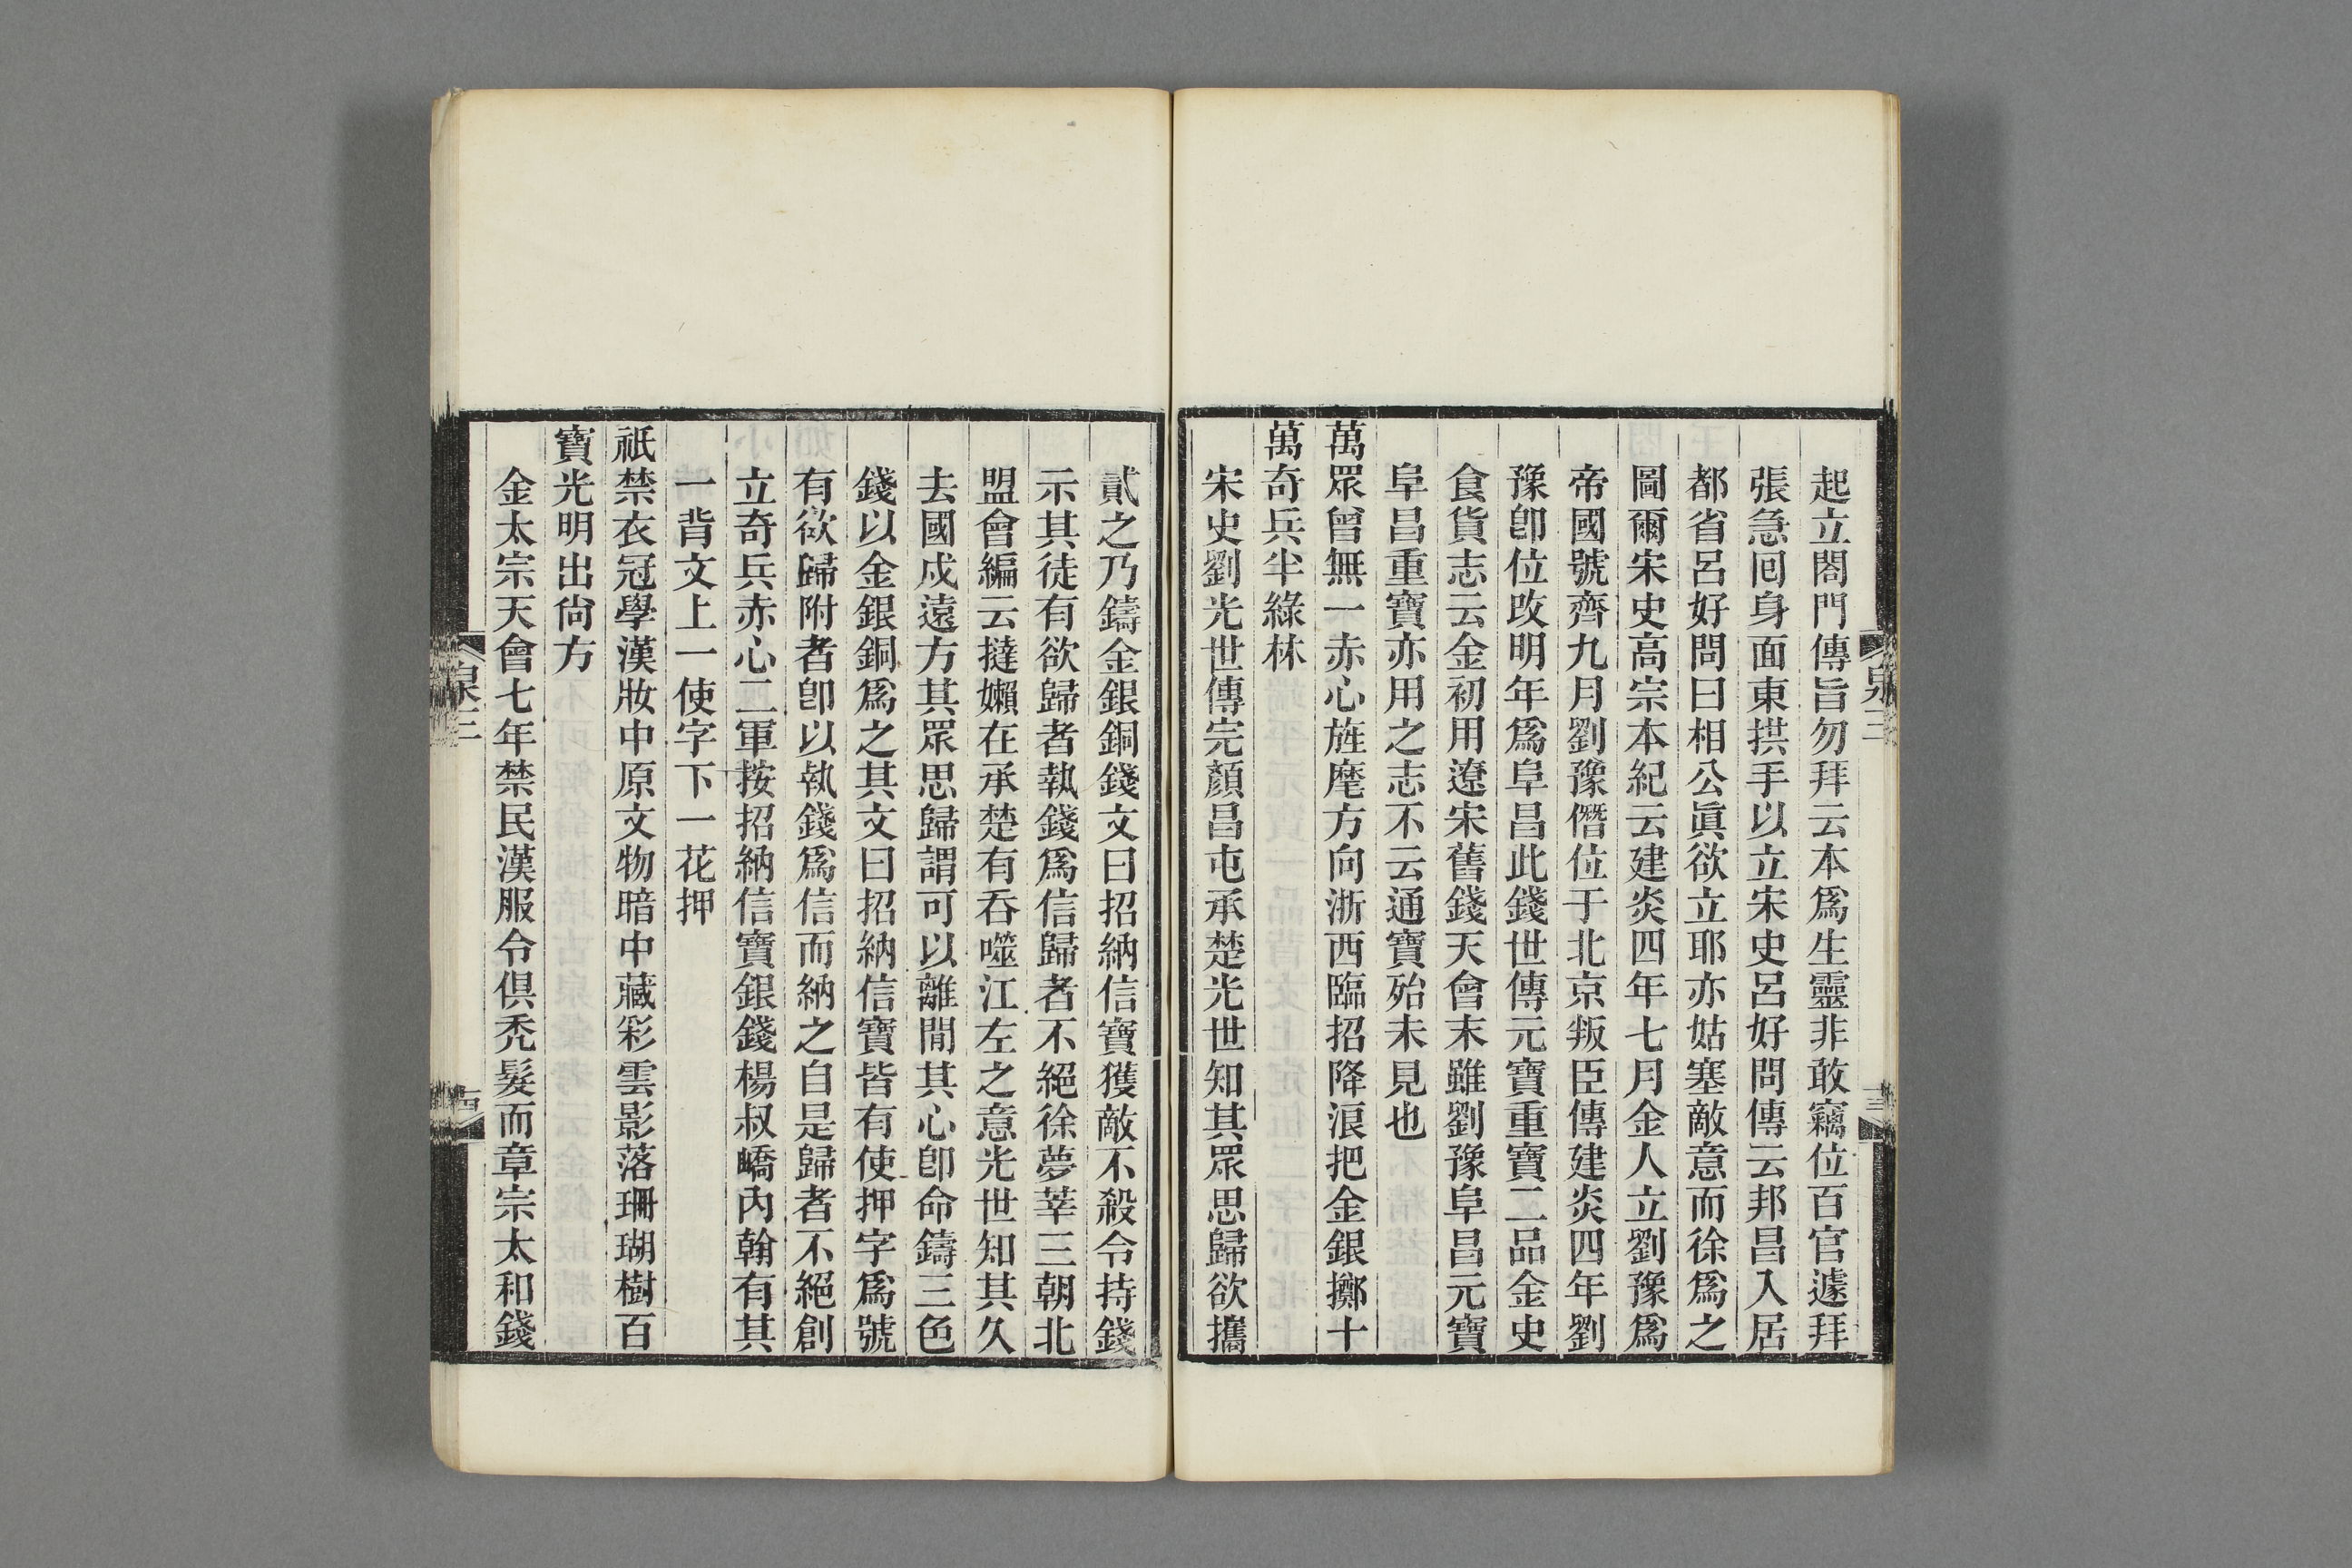 起立閤門傳旨勿拜云本爲生靈非敢竊位百官遽拜
張急回身面東拱手以立宋史呂好問傳云邦昌入居
都省呂好問曰相公眞欲立耶亦姑塞敵意而徐爲之
圖爾宋史高宗本紀云建炎四年七月金人立劉豫爲
帝國號齊九月劉豫僭位于北京叛臣傳建炎四年劉
豫卽位改明年爲阜昌此錢世傳元寶重寶二品金史
食貨志云金初用遼宋舊錢天會末雖劉豫阜昌元寶
阜昌重寶亦用之志不云通寶殆未見也
萬眾曾無一赤心旌麾方向浙西臨招降浪把金銀擲十
萬奇兵半綠林
宋史劉光世傳完顏昌屯承楚光世知其眾思歸欲攜
貳之乃鑄金銀銅錢文曰招納信寶獲敵不殺令持錢
示其徒有欲歸者執錢爲信歸者不絕徐夢莘三朝北
盟會編云撻懶在承楚有吞噬江左之意光世知其久
去國戍遠方其眾思歸謂可以離間其心卽命鑄三色
錢以金銀銅爲之其文曰招納信寶皆有使押字爲號
有欲歸附者卽以執錢爲信而納之自是歸者不絕創
立奇兵赤心二軍按招納信寶銀錢楊叔嶠內翰有其
一背文上一使字下一花押
祇禁衣冠學漢妝中原文物暗中藏彩雲影落珊瑚樹百
寶光明出尙方
金太宗天會七年禁民漢服令俱禿髮而章宗太和錢
泉三
泉三